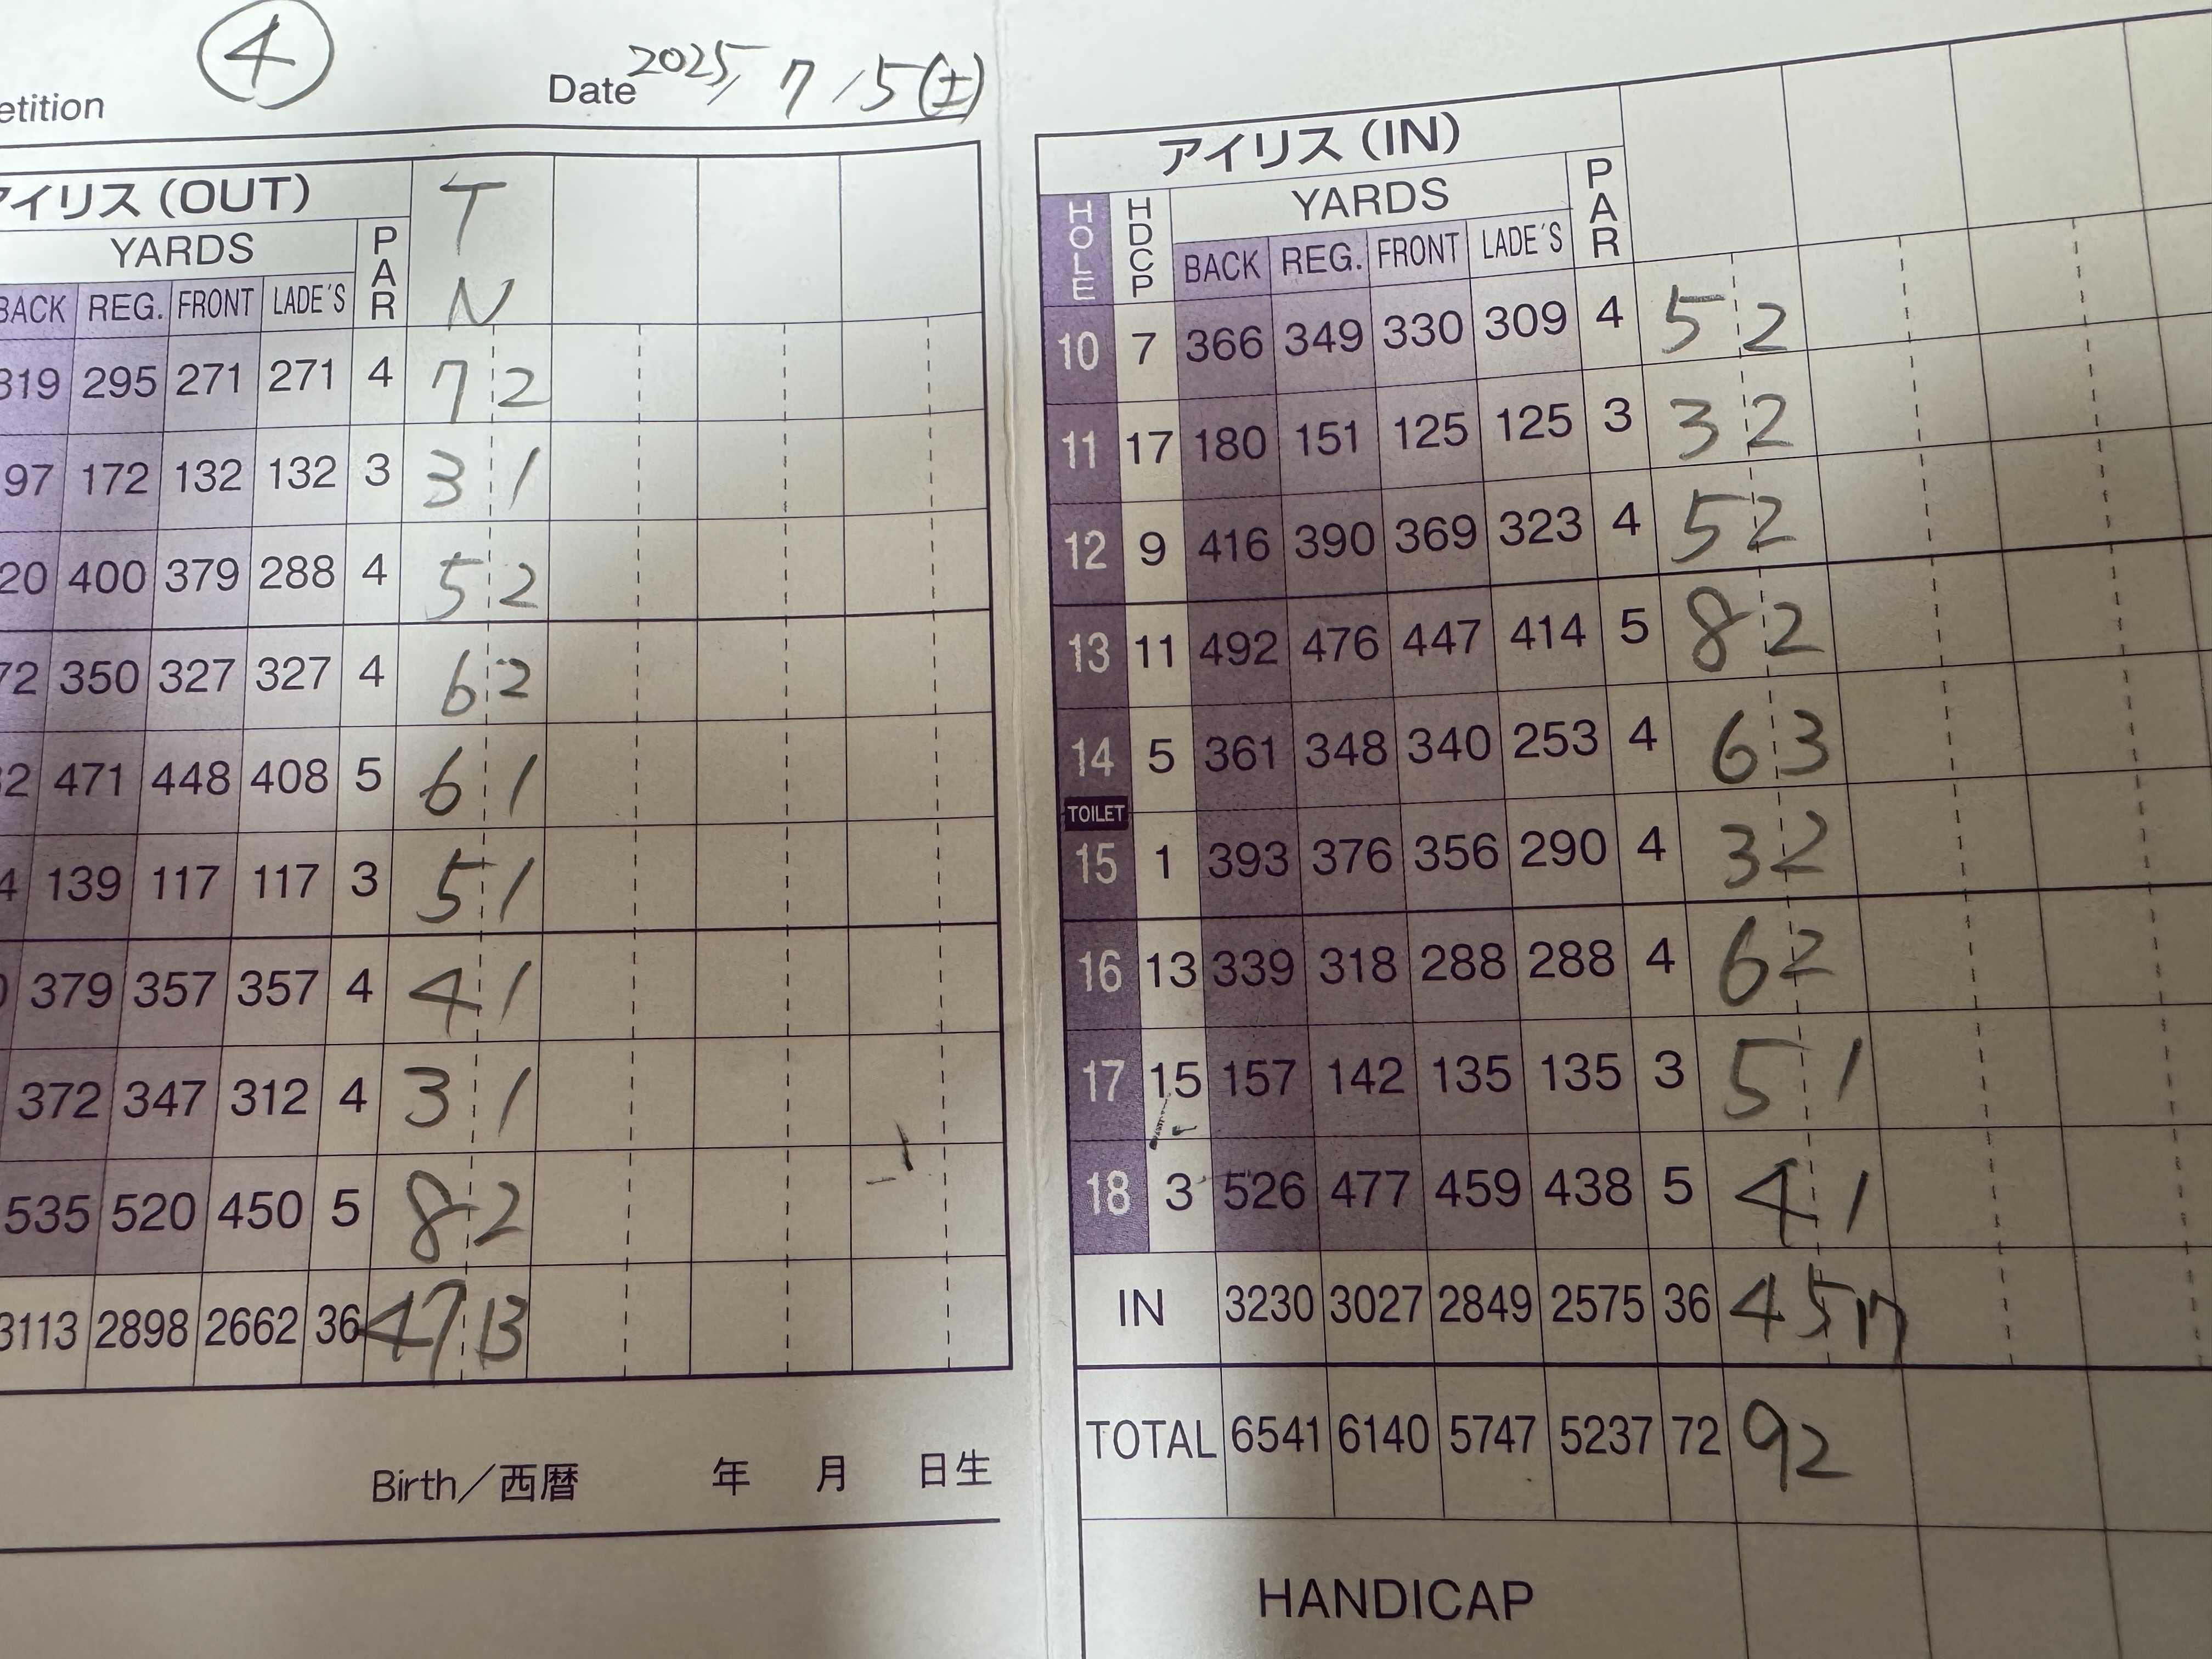 ④
etition Date 2025/7/5(土)
アイリス(OUT) PAR T N
YARDS
BACK REG. FRONT LADE'S
319 295 271 271 4 7 2
97 172 132 132 3 3 1
20 400 379 288 4 5 2
72 350 327 327 4 6 2
32 471 448 408 5 6 1
4 139 117 117 3 5 1
0 379 357 357 4 4 1
372 347 312 4 3 1
535 520 450 5 8 2
3113 2898 2662 36 47 13
Birth/西暦 年 月 日生
アイリス(IN)
HOLE HDCP YARDS PAR
BACK REG. FRONT LADE'S
10 7 366 349 330 309 4 5 2
11 17 180 151 125 125 3 3 2
12 9 416 390 369 323 4 5 2
13 11 492 476 447 414 5 8 2
14 5 361 348 340 253 4 6 3
TOILET
15 1 393 376 356 290 4 3 2
16 13 339 318 288 288 4 6 2
17 15 157 142 135 135 3 5 1
18 3 526 477 459 438 5 4 1
IN 3230 3027 2849 2575 36 45 17
TOTAL 6541 6140 5747 5237 72 92
HANDICAP